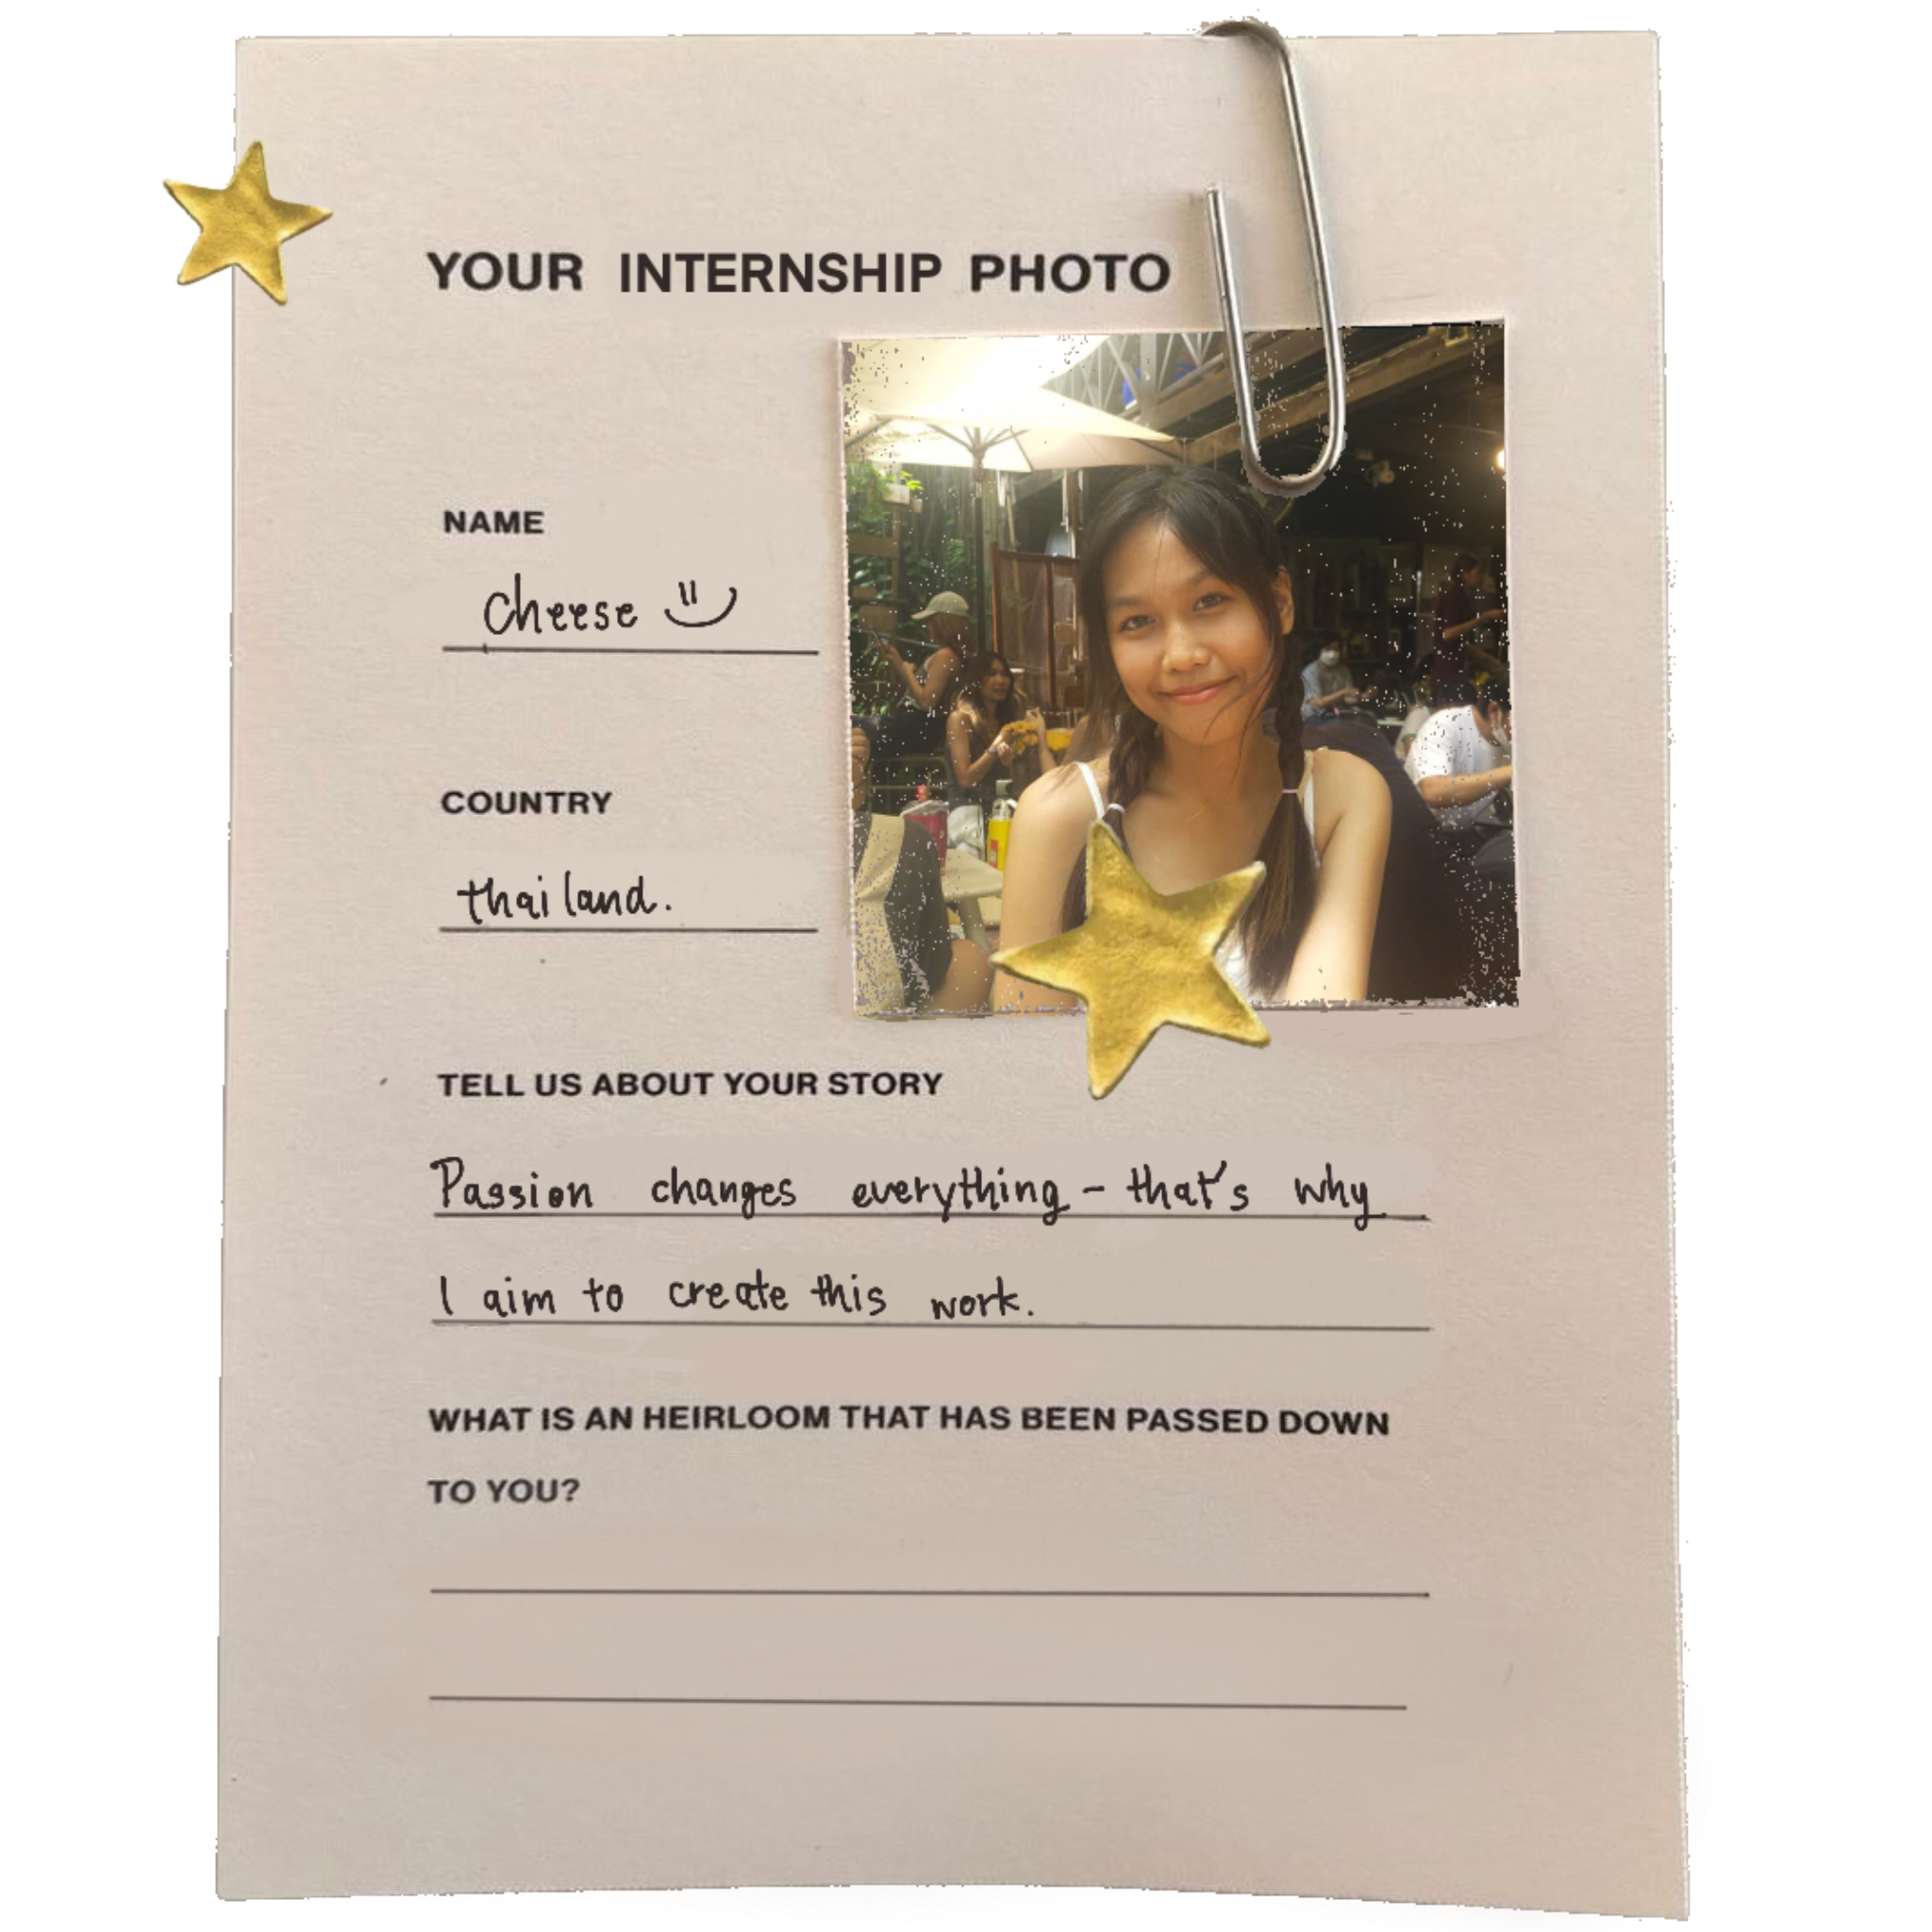 YOUR INTERNSHIP PHOTO
NAME
cheese
COUNTRY
thailand.
TELL US ABOUT YOUR STORY
Passion changes everything - that's why
I aim to create this work.
WHAT IS AN HEIRLOOM THAT HAS BEEN PASSED DOWN
TO YOU?